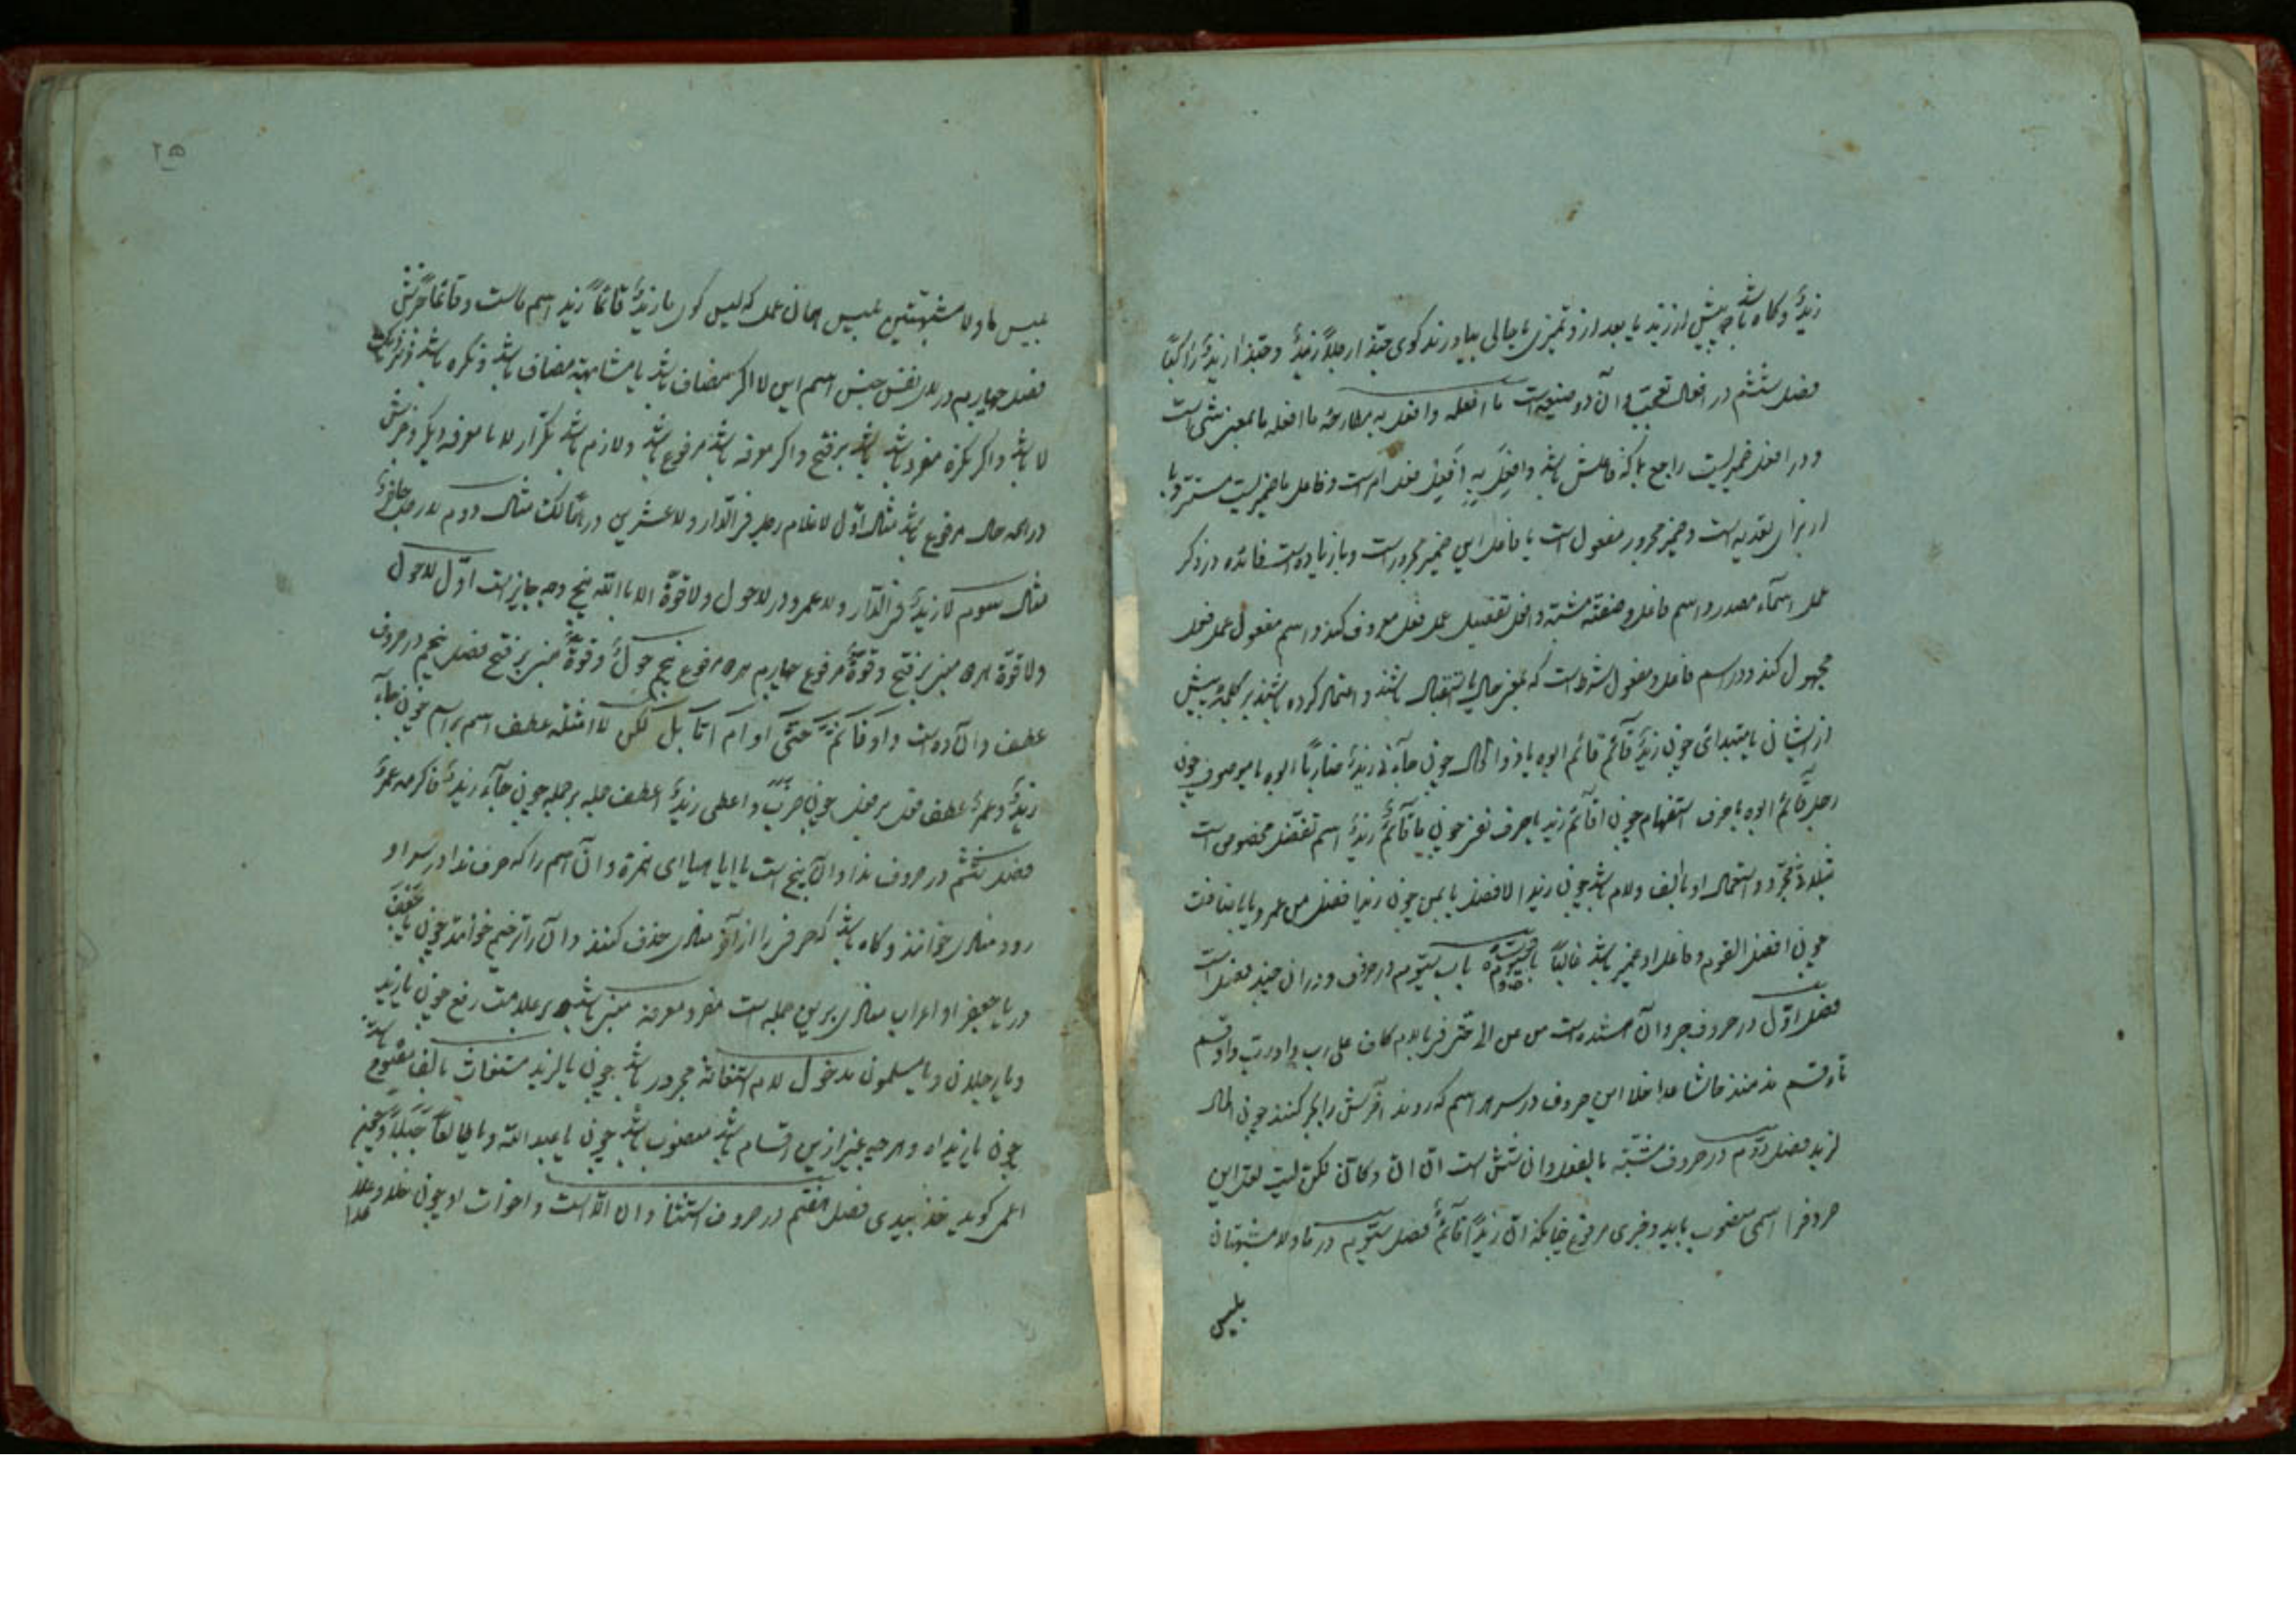 زیدٌ وکاه باشد که پیش از زید یا بعد ازو تمیزی یا حالی بیاورند کوی حبّذا رجلاً زیدٌ وحبّذا زیدٌ راکبًا
فصل ششم در افعال تعجّب وآن دو صیغه است ما افعله وافعل به ما افعله ما بمعنی شی است
ودر افعل ضمیریست راجع بما که فاعلش باشد وافعِل بِهِ اَفعِل فعل امر است وفاعل ضمیریست مستتر وبا
از برای تعدیه است وضمیر مجرور مفعول است یا فاعل این ضمیر مجرور است وبا زیاده است فائده در ذکر
عمل اسماء مصدر واسم فاعل وصفة مشبّه وافعل تفضیل عمل فعل معروف کنند واسم مفعول عمل فعل
مجهول کند ودر اسم فاعل ومفعول شرط است که بمعنی حال یا استقبال باشند واعتماد کرده باشند بر کلمهٔ پیش
از ایشان یا مبتدائی چون زیدٌ قآئم ابوه یا ذو الحال چون جآءنی زیدٌ ضاربًا ابوه یا موصوف چون
رجلٌ قآئمٌ ابوه یا حرف استفهام چون اقآئمٌ زید یا حرف نفی چون ما قآئمٌ زیدٌ اسم تفضیل مخصوص است
بثلاثی مجرّد واستعمال او بالف ولام باشد چون زید الافضل یا بمن چون زید افضل من عمرو یا باضافت
چون افضل القوم وفاعل او ضمیر باشد غالبًا باب سیّوم در حروف ودر ان چند فصل است
فصل اوّل در حروف جر وآن هفده است من عن الی حتّی فی با لام کاف علی رب واو رب واو قسم
تاء قسم مذ منذ حاشا عدا خلا این حروف در سر هر اسم که روند آخرش را بجر کنند چون المال
لزید فصل دوّم در حروف مشبّهة بالفعل وان شش است انّ انّ وکانّ لکنّ لیت لعل این
حروف را اسمی منصوب باید وخبری مرفوع چنانکه انّ زیدًا قآئمٌ فصل سیّوم در ما ولا مشبهتان
بلیس
۲۵
بلیس ما ولا مشبهتین بلیس همان عمل که لیس کوی ما زیدٌ قائمًا زید اسم ماست وقائمًا خبرش
فصل چهاریم در لای نفی جنس اسم این لا اکر مضاف باشد یا مشابهه مضاف باشد ونکره باشد
لا باشد واکر نکره مفرد باشد باشد بر فتح واکر معرفه باشد مرفوع باشد ولازم باشد تکرار لا با معرفه دیکر وخبرش
در همه حال مرفوع باشد مثال اوّل لا غلام رجلٍ فی الدّار ولا عشرین درهمًا لک مثال دوم لا رجل حاضرٌ
مثال سیوم لا زیدٌ فی الدّار ولا عمرو ودر لا حول ولا قوّة الا باالله پنج وجه جایز است اوّل لا حول
ولا قوّة هر دو مبنی بر فتح وقوّةٌ مرفوع چهارم هر دو مرفوع پنج حولٌ وقوّةَ مبنی بر فتح فصل پنجم در حروف
عطف وان ده است واو فآ ثمّ حتّی او ام امّا بل لکن لا امثله عطف اسم بر اسم چون جآء
زیدٌ وعمروٌ عطف فعل بر فعل چون ضربَ واعطی زیدٌ عطف جمله بر جمله چون جآء زیدٌ فاکرمه عمروٌ
فصل ششم در حروف ندا وان پنج است یا ایا هیا ای همزة وان اسم را که حرف ندا در سر او
رود منادی خوانند وکاه باشد که حرفی را از آخر منادی حذف کنند وان را ترخیم خوانند چون یا جَعفَ
در یا جعفر او اعراب منادی برین جمله است مفرد معرفه مبنی باشد بر علامت رفع چون یا زید
ویا رجلان ویا مسلمون مدخول لام استغاثه مجرور باشد چون یا لزید مستغاث بالف مفتوح باشد
چون یا زیداه وهر چه غیر ازین اقسام باشد منصوب باشد چون یا عبد الله ویا طالعًا جَبَلًا وچنین
اعمی کوید خذ بیدی فصل هفتم در حروف استثنا وان الا است واخوات او چون خلا وعدا